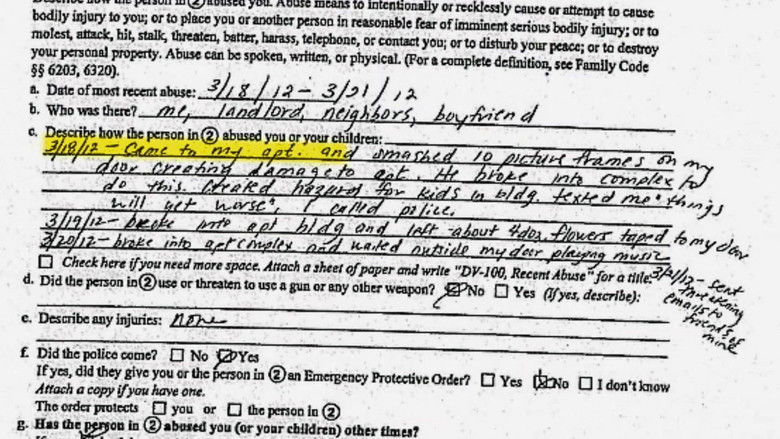 Describe how the person in ② abused you. Abuse means to intentionally or recklessly cause or attempt to cause
bodily injury to you; or to place you or another person in reasonable fear of imminent serious bodily injury; or to
molest, attack, hit, stalk, threaten, batter, harass, telephone, or contact you; or to disturb your peace; or to destroy
your personal property. Abuse can be spoken, written, or physical. (For a complete definition, see Family Code
§§ 6203, 6320).
a. Date of most recent abuse: 3/18/12 - 3/21/12
b. Who was there? me, landlord, neighbors, boyfriend
c. Describe how the person in ② abused you or your children:
3/18/12 - Came to my apt. and smashed 10 picture frames on my
door creating damage to apt. He broke into complex to
do this. Created hazard for kids in bldg. texted me "things
will get worse", I called police.
3/19/12 - broke into apt bldg and left about 4 doz. flowers taped to my door
3/20/12 - broke into apt complex and waited outside my door playing music
3/21/12 - sent
threatening
emails to
friends of
mine
☐ Check here if you need more space. Attach a sheet of paper and write "DV-100, Recent Abuse" for a title.
d. Did the person in ② use or threaten to use a gun or any other weapon? ☑ No ☐ Yes (If yes, describe):
e. Describe any injuries: none
f. Did the police come? ☐ No ☑ Yes
If yes, did they give you or the person in ② an Emergency Protective Order? ☐ Yes ☑ No ☐ I don't know
Attach a copy if you have one.
The order protects ☐ you or ☐ the person in ②
g. Has the person in ② abused you (or your children) other times?